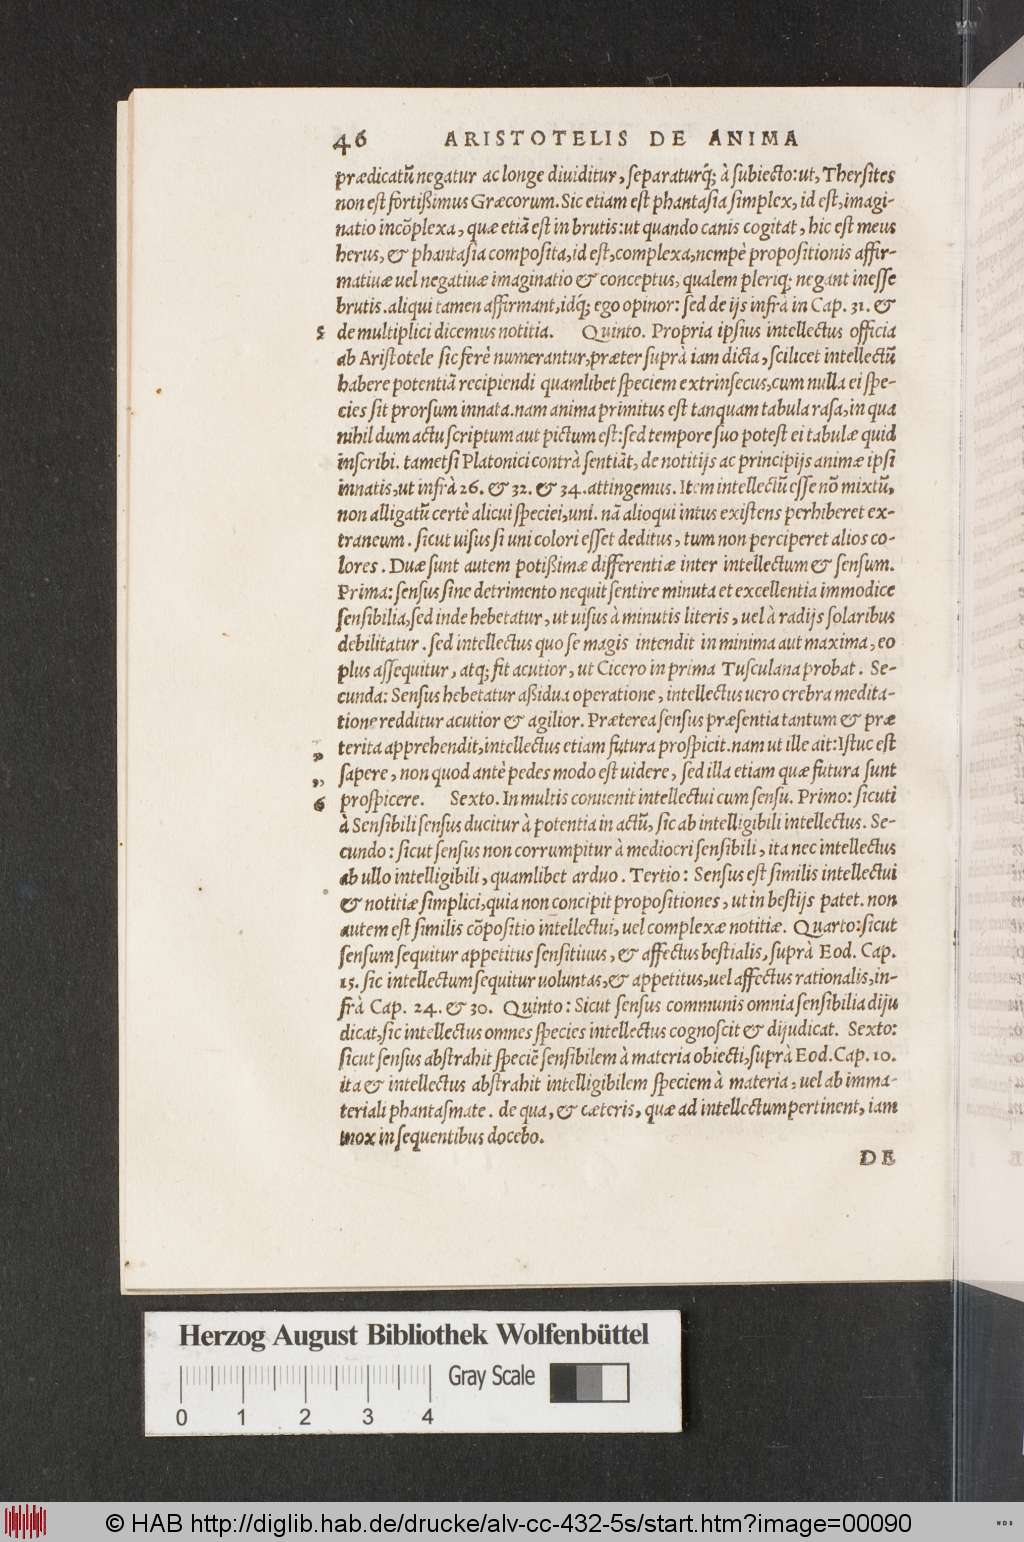 46 ARISTOTELIS DE ANIMA
prædicatũ negatur ac longe diuiditur, separaturq́; à subiecto: ut, Thersites
non est fortißimus Græcorum. Sic etiam est phantasia simplex, id est, imagi-
natio incõplexa, quæ etiã est in brutis: ut quando canis cogitat, hic est meus
herus, & phantasia composita, id est, complexa, nempè propositionis affir-
matiuæ uel negatiuæ imaginatio & conceptus, qualem pleriq; negant inesse
brutis. aliqui tamen affirmant, idq́; ego opinor: sed de ijs infrà in Cap. 31. &
5 de multiplici dicemus notitia. Quinto. Propria ipsius intellectus officia
ab Aristotele sic ferè numerantur, præter suprà iam dicta, scilicet intellectũ
habere potentiã recipiendi quamlibet speciem extrinsecus, cum nulla ei spe-
cies sit prorsum innata. nam anima primitus est tanquam tabula rasa, in qua
nihil dum actu scriptum aut pictum est: sed tempore suo potest ei tabulæ quid
inscribi. tametsi Platonici contrà sentiãt, de notitijs ac principijs animæ ipsi
innatis, ut infrà 26. & 32. & 34. attingemus. Item intellectũ esse nõ mixtũ,
non alligatũ certè alicui speciei, uni. nã alioqui intus existens perhiberet ex-
traneum. sicut uisus si uni colori esset deditus, tum non perciperet alios co-
lores. Duæ sunt autem potißimæ differentiæ inter intellectum & sensum.
Prima: sensus sine detrimento nequit sentire minuta et excellentia immodice
sensibilia, sed inde hebetatur, ut uisus à minutis literis, uel à radijs solaribus
debilitatur. sed intellectus quo se magis intendit in minima aut maxima, eo
plus assequitur, atq; fit acutior, ut Cicero in prima Tusculana probat. Se-
cunda: Sensus hebetatur aßidua operatione, intellectus uero crebra medita-
tione redditur acutior & agilior. Præterea sensus præsentia tantum & præ
„ terita apprehendit, intellectus etiam futura prospicit. nam ut ille ait: Istuc est
„ sapere, non quod antè pedes modo est uidere, sed illa etiam quæ futura sunt
6 prospicere. Sexto. In multis conuenit intellectui cum sensu. Primo: sicuti
à Sensibili sensus ducitur à potentia in actũ, sic ab intelligibili intellectus. Se-
cundo: sicut sensus non corrumpitur à mediocri sensibili, ita nec intellectus
ab ullo intelligibili, quamlibet arduo. Tertio: Sensus est similis intellectui
& notitiæ simplici, quia non concipit propositiones, ut in bestijs patet. non
autem est similis cõpositio intellectui, uel complexæ notitiæ. Quarto: sicut
sensum sequitur appetitus sensitiuus, & affectus bestialis, suprà Eod. Cap.
15. sic intellectum sequitur uoluntas, & appetitus, uel affectus rationalis, in-
frà Cap. 24. & 30. Quinto: Sicut sensus communis omnia sensibilia diju
dicat, sic intellectus omnes species intellectus cognoscit & dijudicat. Sexto:
sicut sensus abstrahit speciẽ sensibilem à materia obiecti, suprà Eod. Cap. 10.
ita & intellectus abstrahit intelligibilem speciem à materia, uel ab imma-
teriali phantasmate. de qua, & cæteris, quæ ad intellectum pertinent, iam
mox in sequentibus docebo.
DE
Herzog August Bibliothek Wolfenbüttel
Gray Scale
0 1 2 3 4
© HAB http://diglib.hab.de/drucke/alv-cc-432-5s/start.htm?image=00090